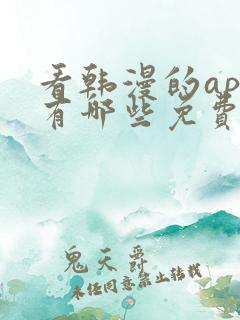 看韩漫的ap
有哪些免费
鬼天舜
未经同意禁止转载